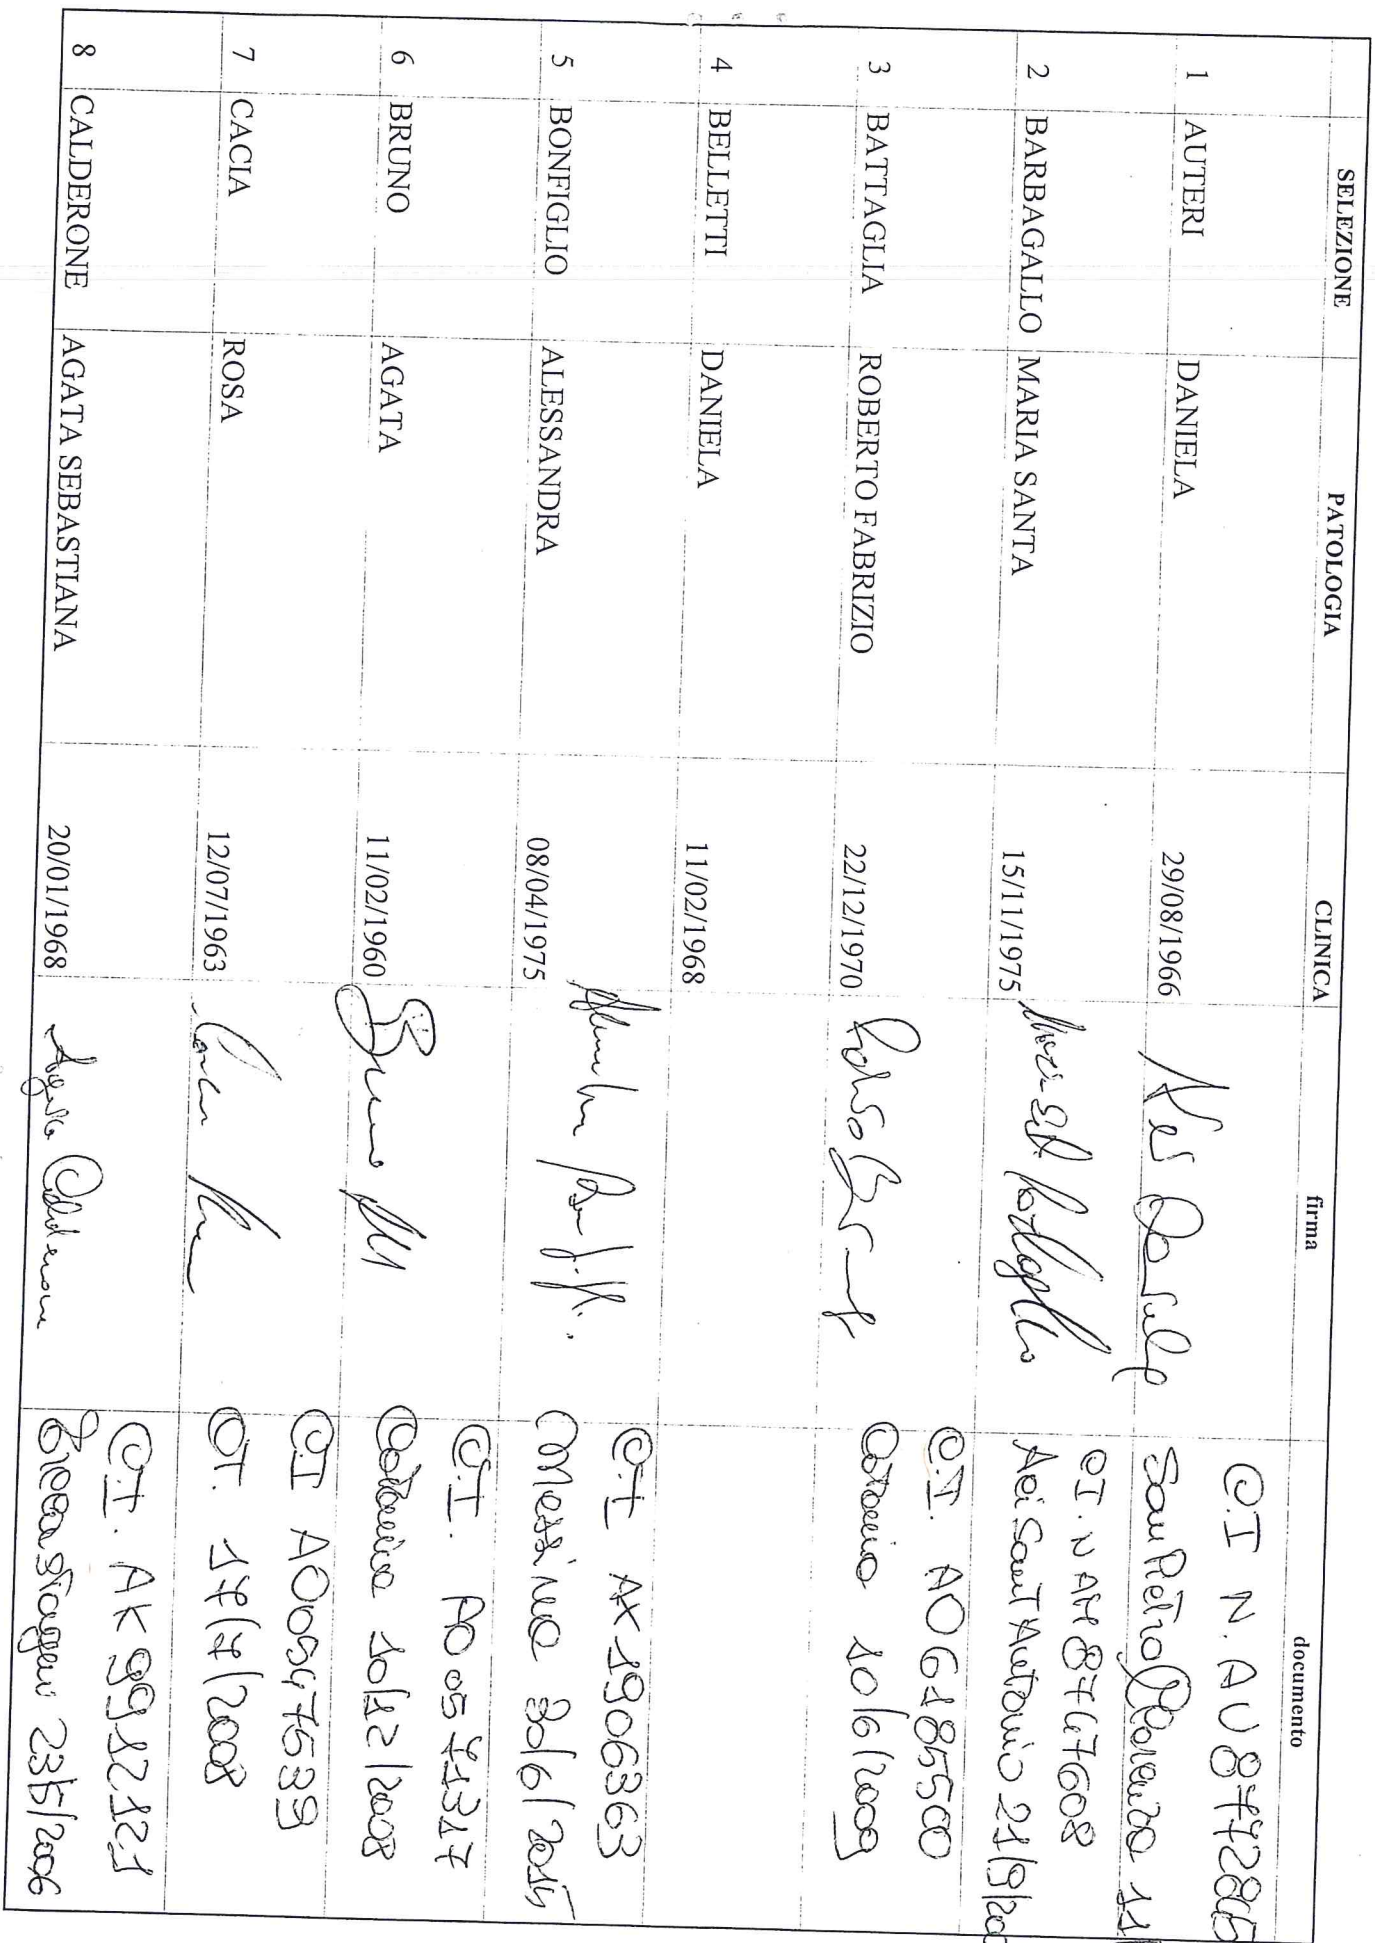 SELEZIONE PATOLOGIA CLINICA firma documento
1 AUTERI DANIELA 29/08/1966 C.I N. AU 8772865
San Pietro Clarenza 11/
2 BARBAGALLO MARIA SANTA 15/11/1975 CI. N AM 8747608
Aci Sant'Antonio 21/9/200
3 BATTAGLIA ROBERTO FABRIZIO 22/12/1970 C.I. AO 6185500
Catania 10/6/2009
4 BELLETTI DANIELA 11/02/1968
5 BONFIGLIO ALESSANDRA 08/04/1975 C.I AX 1906363
Messina 30/6/2015
6 BRUNO AGATA 11/02/1960 Bruno C.I. AO 0571317
Catania 10/12/2008
7 CACIA ROSA 12/07/1963 C.I AO 0547539
CT. 17/7/2008
8 CALDERONE AGATA SEBASTIANA 20/01/1968 Agata Calderone C.I. AK 9912121
23/5/2006